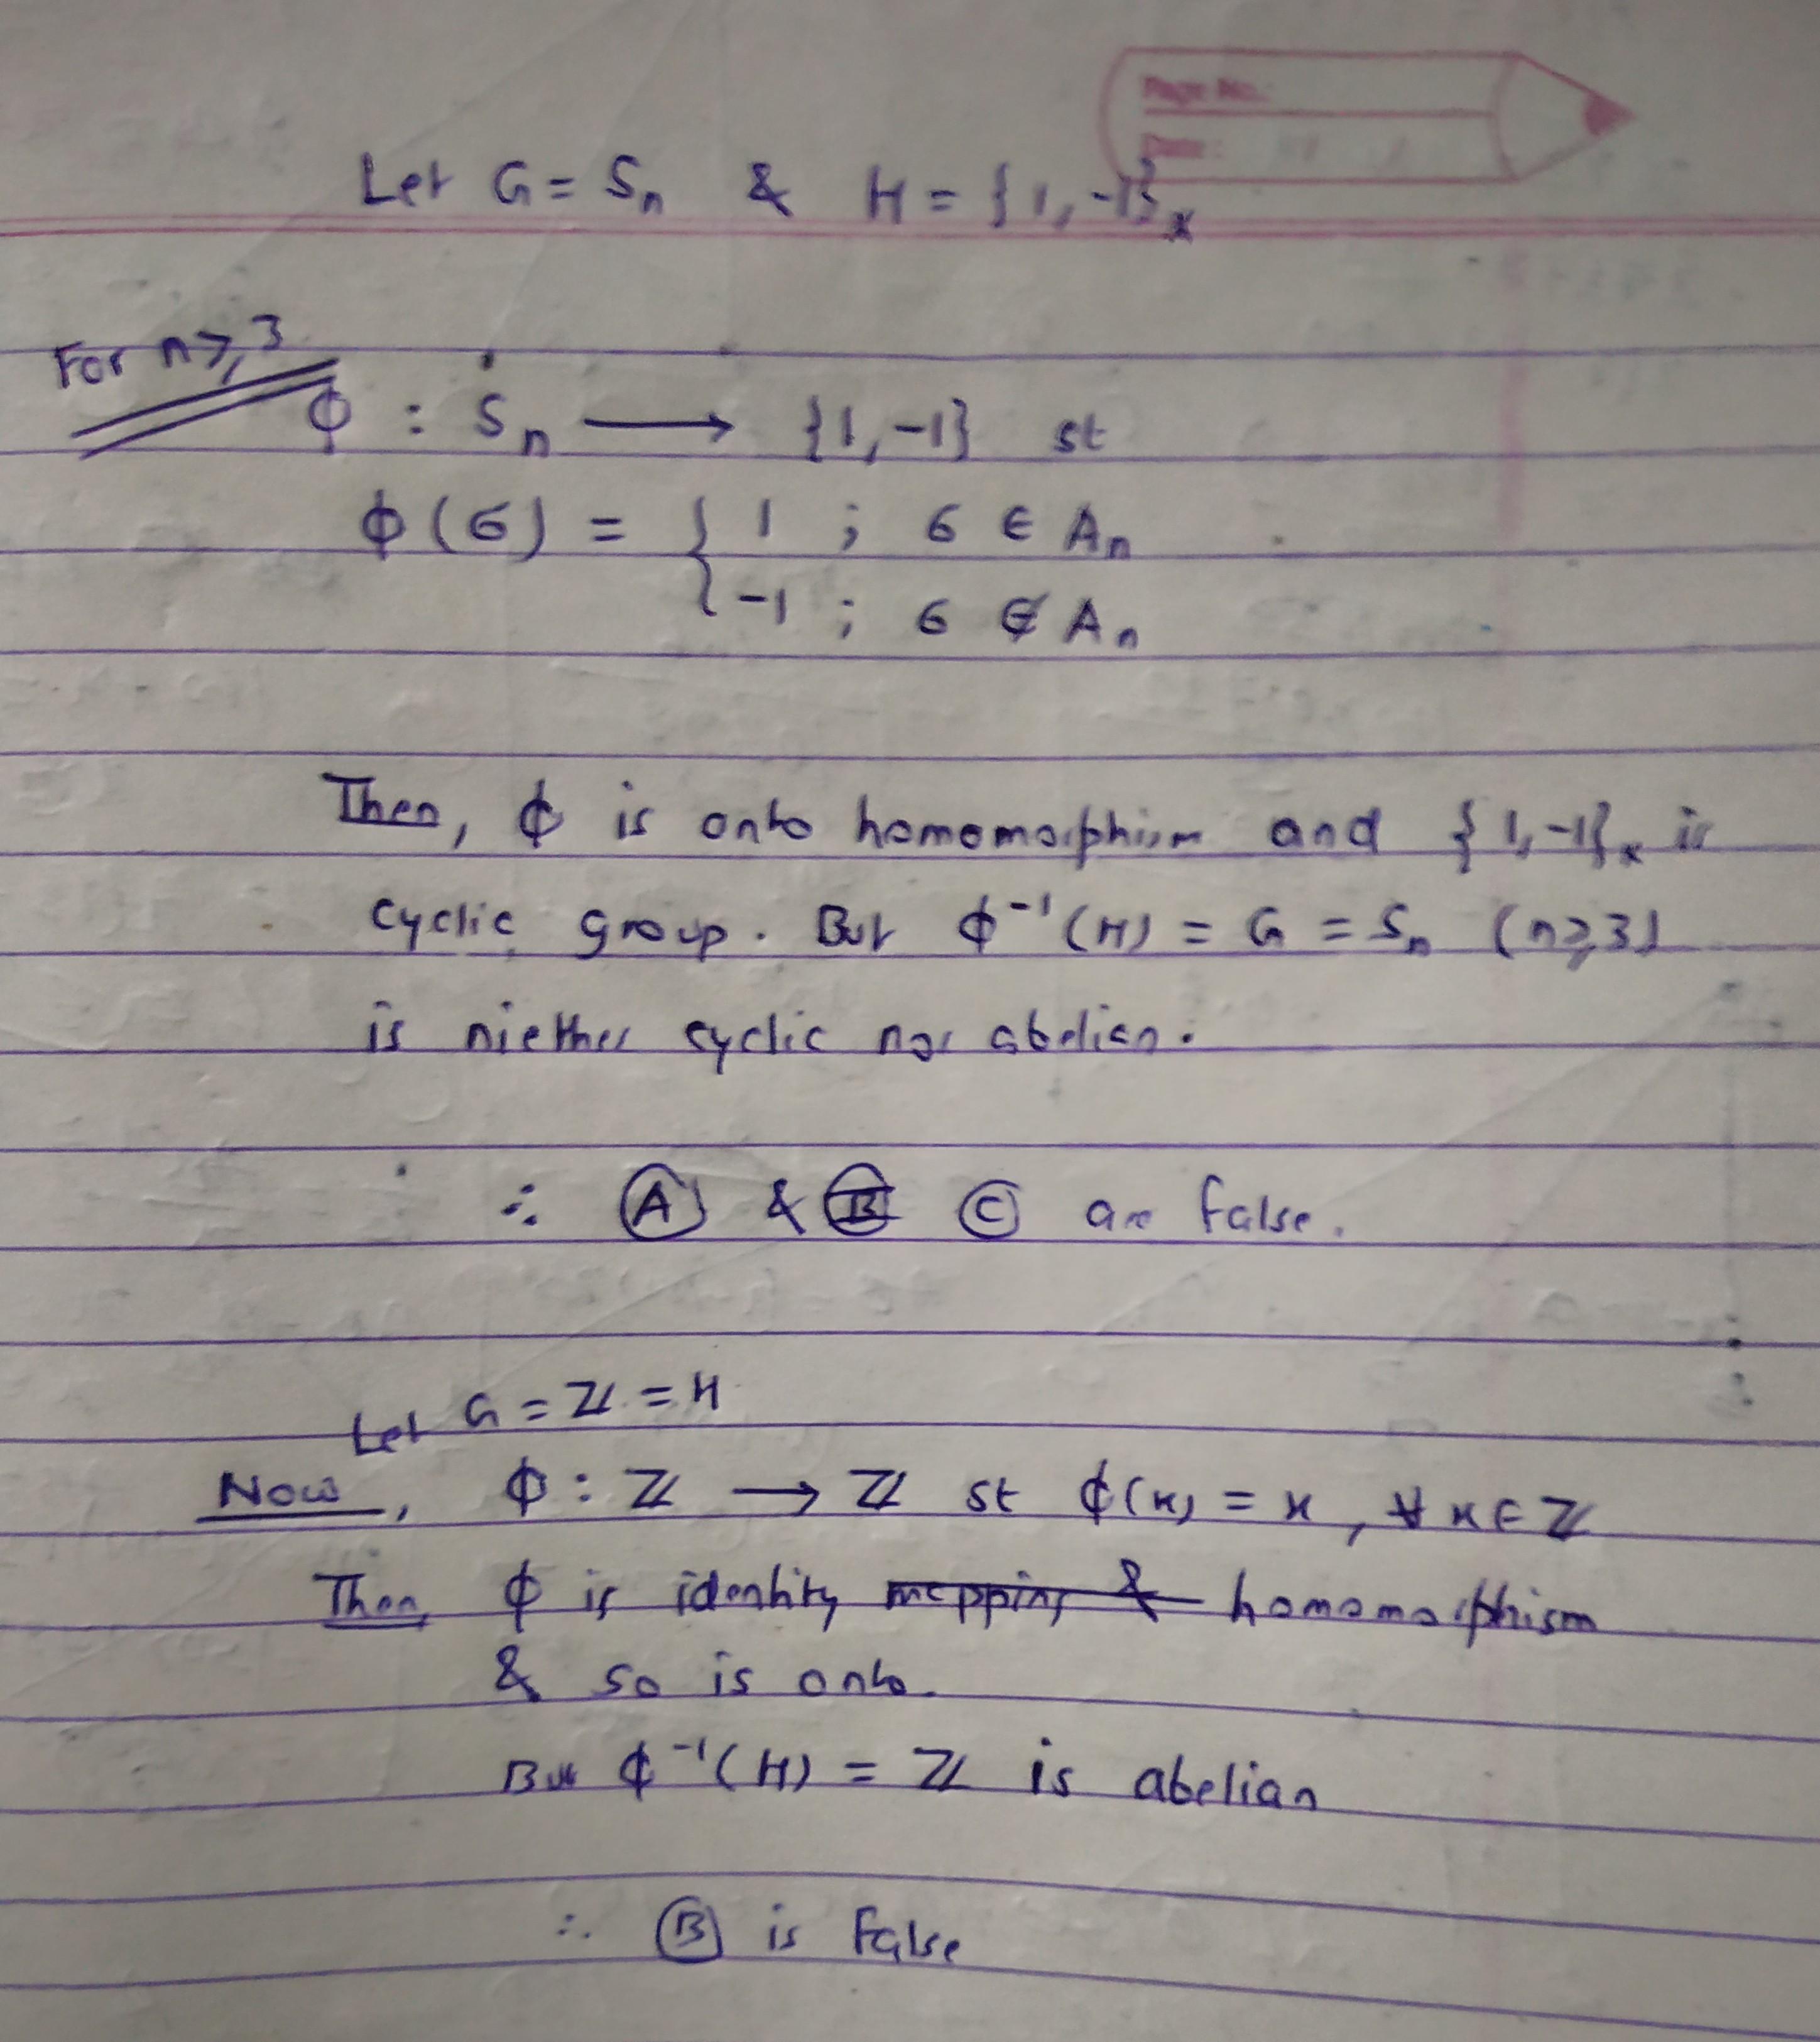 Page No.:
Date:
Let G = Sn & H = {1, -1}ₓ
For n ≥ 3
ϕ : Sn ⟶ {1, -1} st
ϕ(σ) = { 1 ; σ ∈ An
-1 ; σ ∉ An
Then, ϕ is onto homomorphism and {1, -1}ₓ is
cyclic group. But ϕ⁻¹(H) = G = Sn (n ≥ 3)
is niether cyclic nor abelian.
∴ Ⓐ & Ⓒ are false.
Let G = ℤ = H
Now, ϕ : ℤ ⟶ ℤ st ϕ(x) = x, ∀ x ∈ ℤ
Then, ϕ is identity mapping & homomorphism
& so is onto.
But ϕ⁻¹(H) = ℤ is abelian
∴ Ⓑ is false